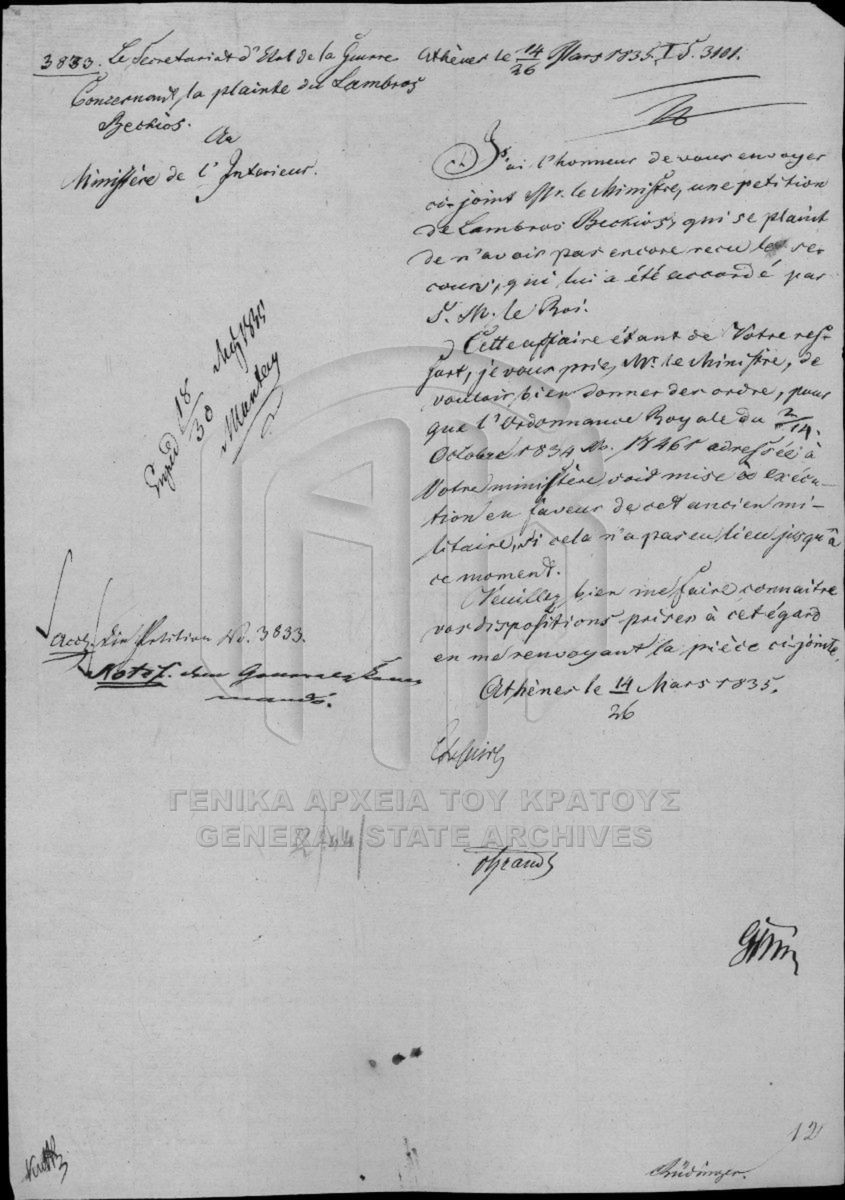 3833. Le Secretariat d'Etat de la Guerre
Concernant, la plainte du Lambros
Beckios.
Au
Ministère de l'Interieur.
Athènes le 14/26 Mars 1835. I S. 3101.
J'ai l'honneur de vous envoyer
ci-joint Mr. le Ministre, une petition
de Lambros Beckios, qui se plaint
de n'avoir pas encore recu le se-
cours, qui lui a été accordé par
S. M. le Roi.
Cette affaire étant de Votre res-
sort, je vous prie, Mr. le Ministre, de
vouloir bien donner des ordre, pour
que l'Ordonnance Royale du 2/14.
Octobre 1834 No. adressée à
Votre ministère soit mise à exécu-
tion en faveur de cet ancien mi-
litaire, si cela n'a pas eu lieu jusqu'à
ce moment.
Veuillez bien me faire connaitre
vos dispositions prises à cet égard
en me renvoyant la pièce ci-jointe.
Athènes le 14/26 Mars 1835.
18/30 1835
Petition No. 3833.
Notif. dem General
mando.
ΓΕΝΙΚΑ ΑΡΧΕΙΑ ΤΟΥ ΚΡΑΤΟΥΣ
GENERAL STATE ARCHIVES
12
Rüdinger.